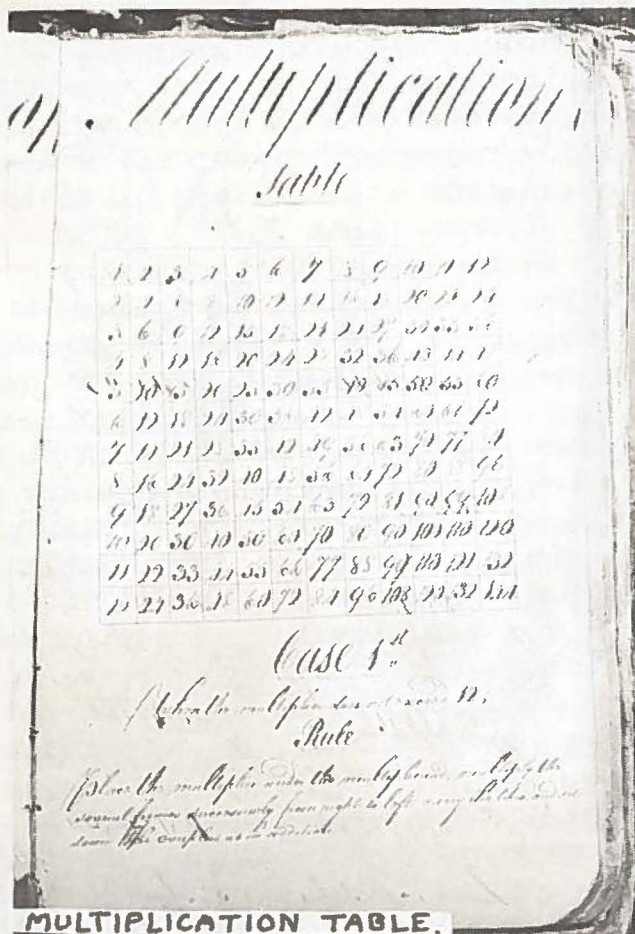 Multiplication,
Table
1 2 3 4 5 6 7 8 9 10 11 12
2 4 6 8 10 12 14 16 18 20 22 24
3 6 9 12 15 18 21 24 27 30 33 36
4 8 12 16 20 24 28 32 36
5 10 15 20 25 30 35 45 50 55 60
6 12 18 24 30 36 72
7 14 21 28 35 42 49 56 63 70 77 84
8 16 24 32 40 48 56 64 72 80 88 96
9 18 27 36 45 54 63 72 81 90 99 108
10 20 30 40 50 60 70 80 90 100 110 120
11 22 33 44 55 66 77 88 99 110 121 132
12 24 36 48 60 72 84 96 108 132 144
Case 1st
When the multiplier does not exceed 12,
Rule
Place the multiplier under the multiplicand, multiply the
several figures successively from right to left
down the as in addition
MULTIPLICATION TABLE.